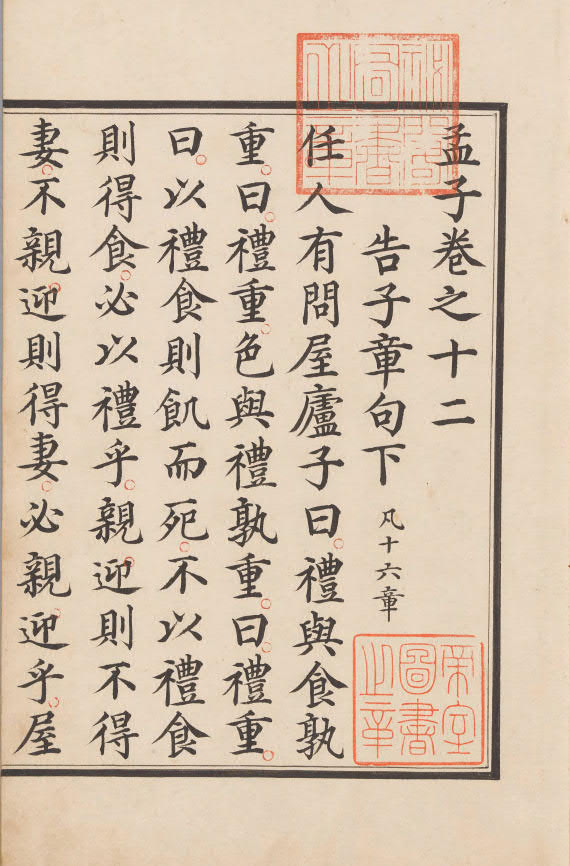 祕閣圖書之章
孟子卷之十二
告子章句下 凡十六章
帝室圖書之章
任人有問屋廬子曰。禮與食孰
重。曰。禮重。色與禮孰重。曰。禮重。
曰。以禮食則飢而死。不以禮食
則得食。必以禮乎。親迎則不得
妻。不親迎則得妻。必親迎乎。屋